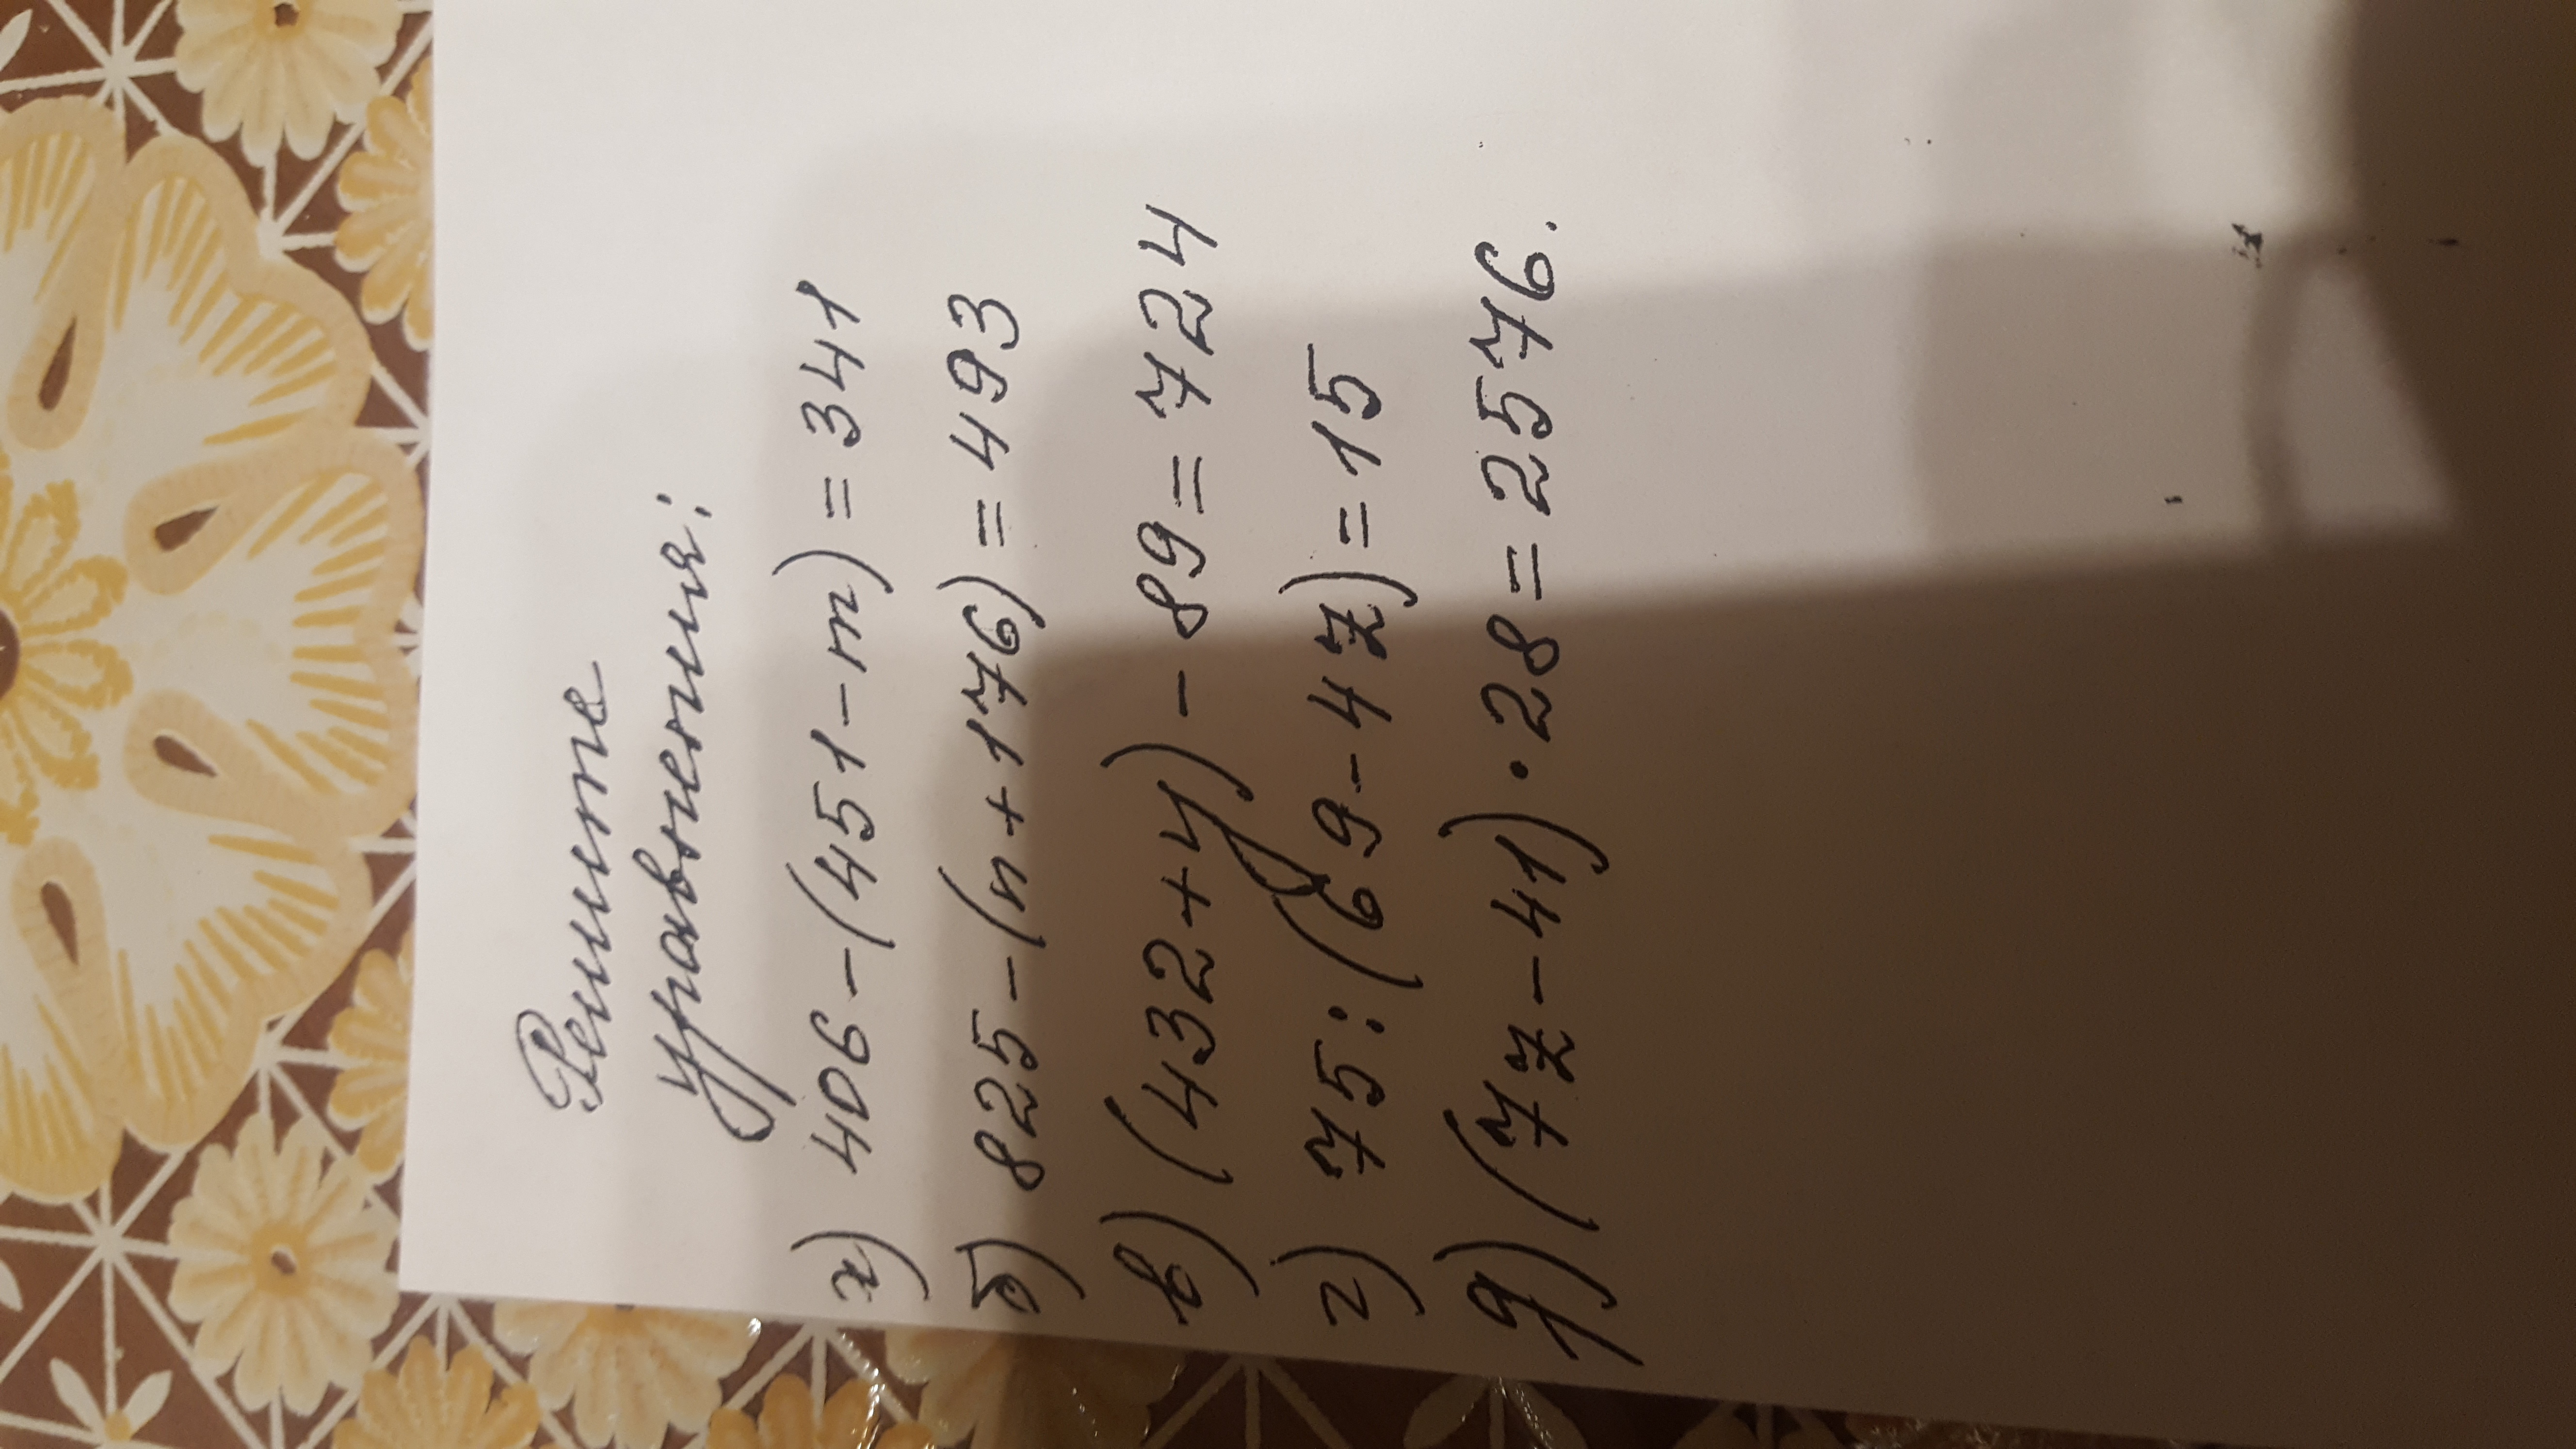 Решите
уравнения:
а) 406-(451-m)=341
б) 825-(n+176)=493
в) (432+y)-89=724
г) 75:(69-4z)=15
д) (7z-41)·28=2576.